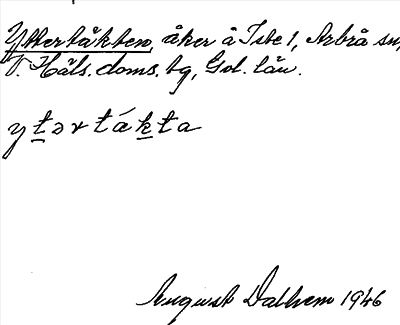 Yttertåkten, åker å Iste 1, Arbrå sn,
V. Häls. doms. bg, Gvl. län.
y t ə r t á k t a
August Dalhem 1946